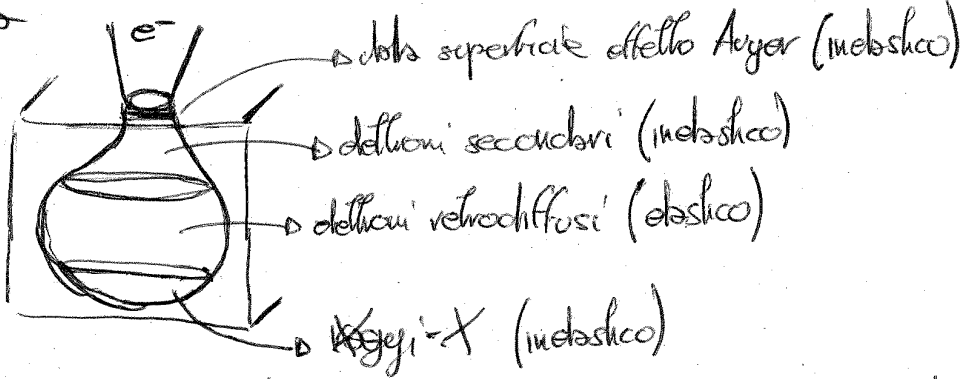 e⁻
dalla superficie effetto Auger (inelastico)
elettroni secondari (inelastico)
elettroni retrodiffusi (elastico)
raggi-X (inelastico)